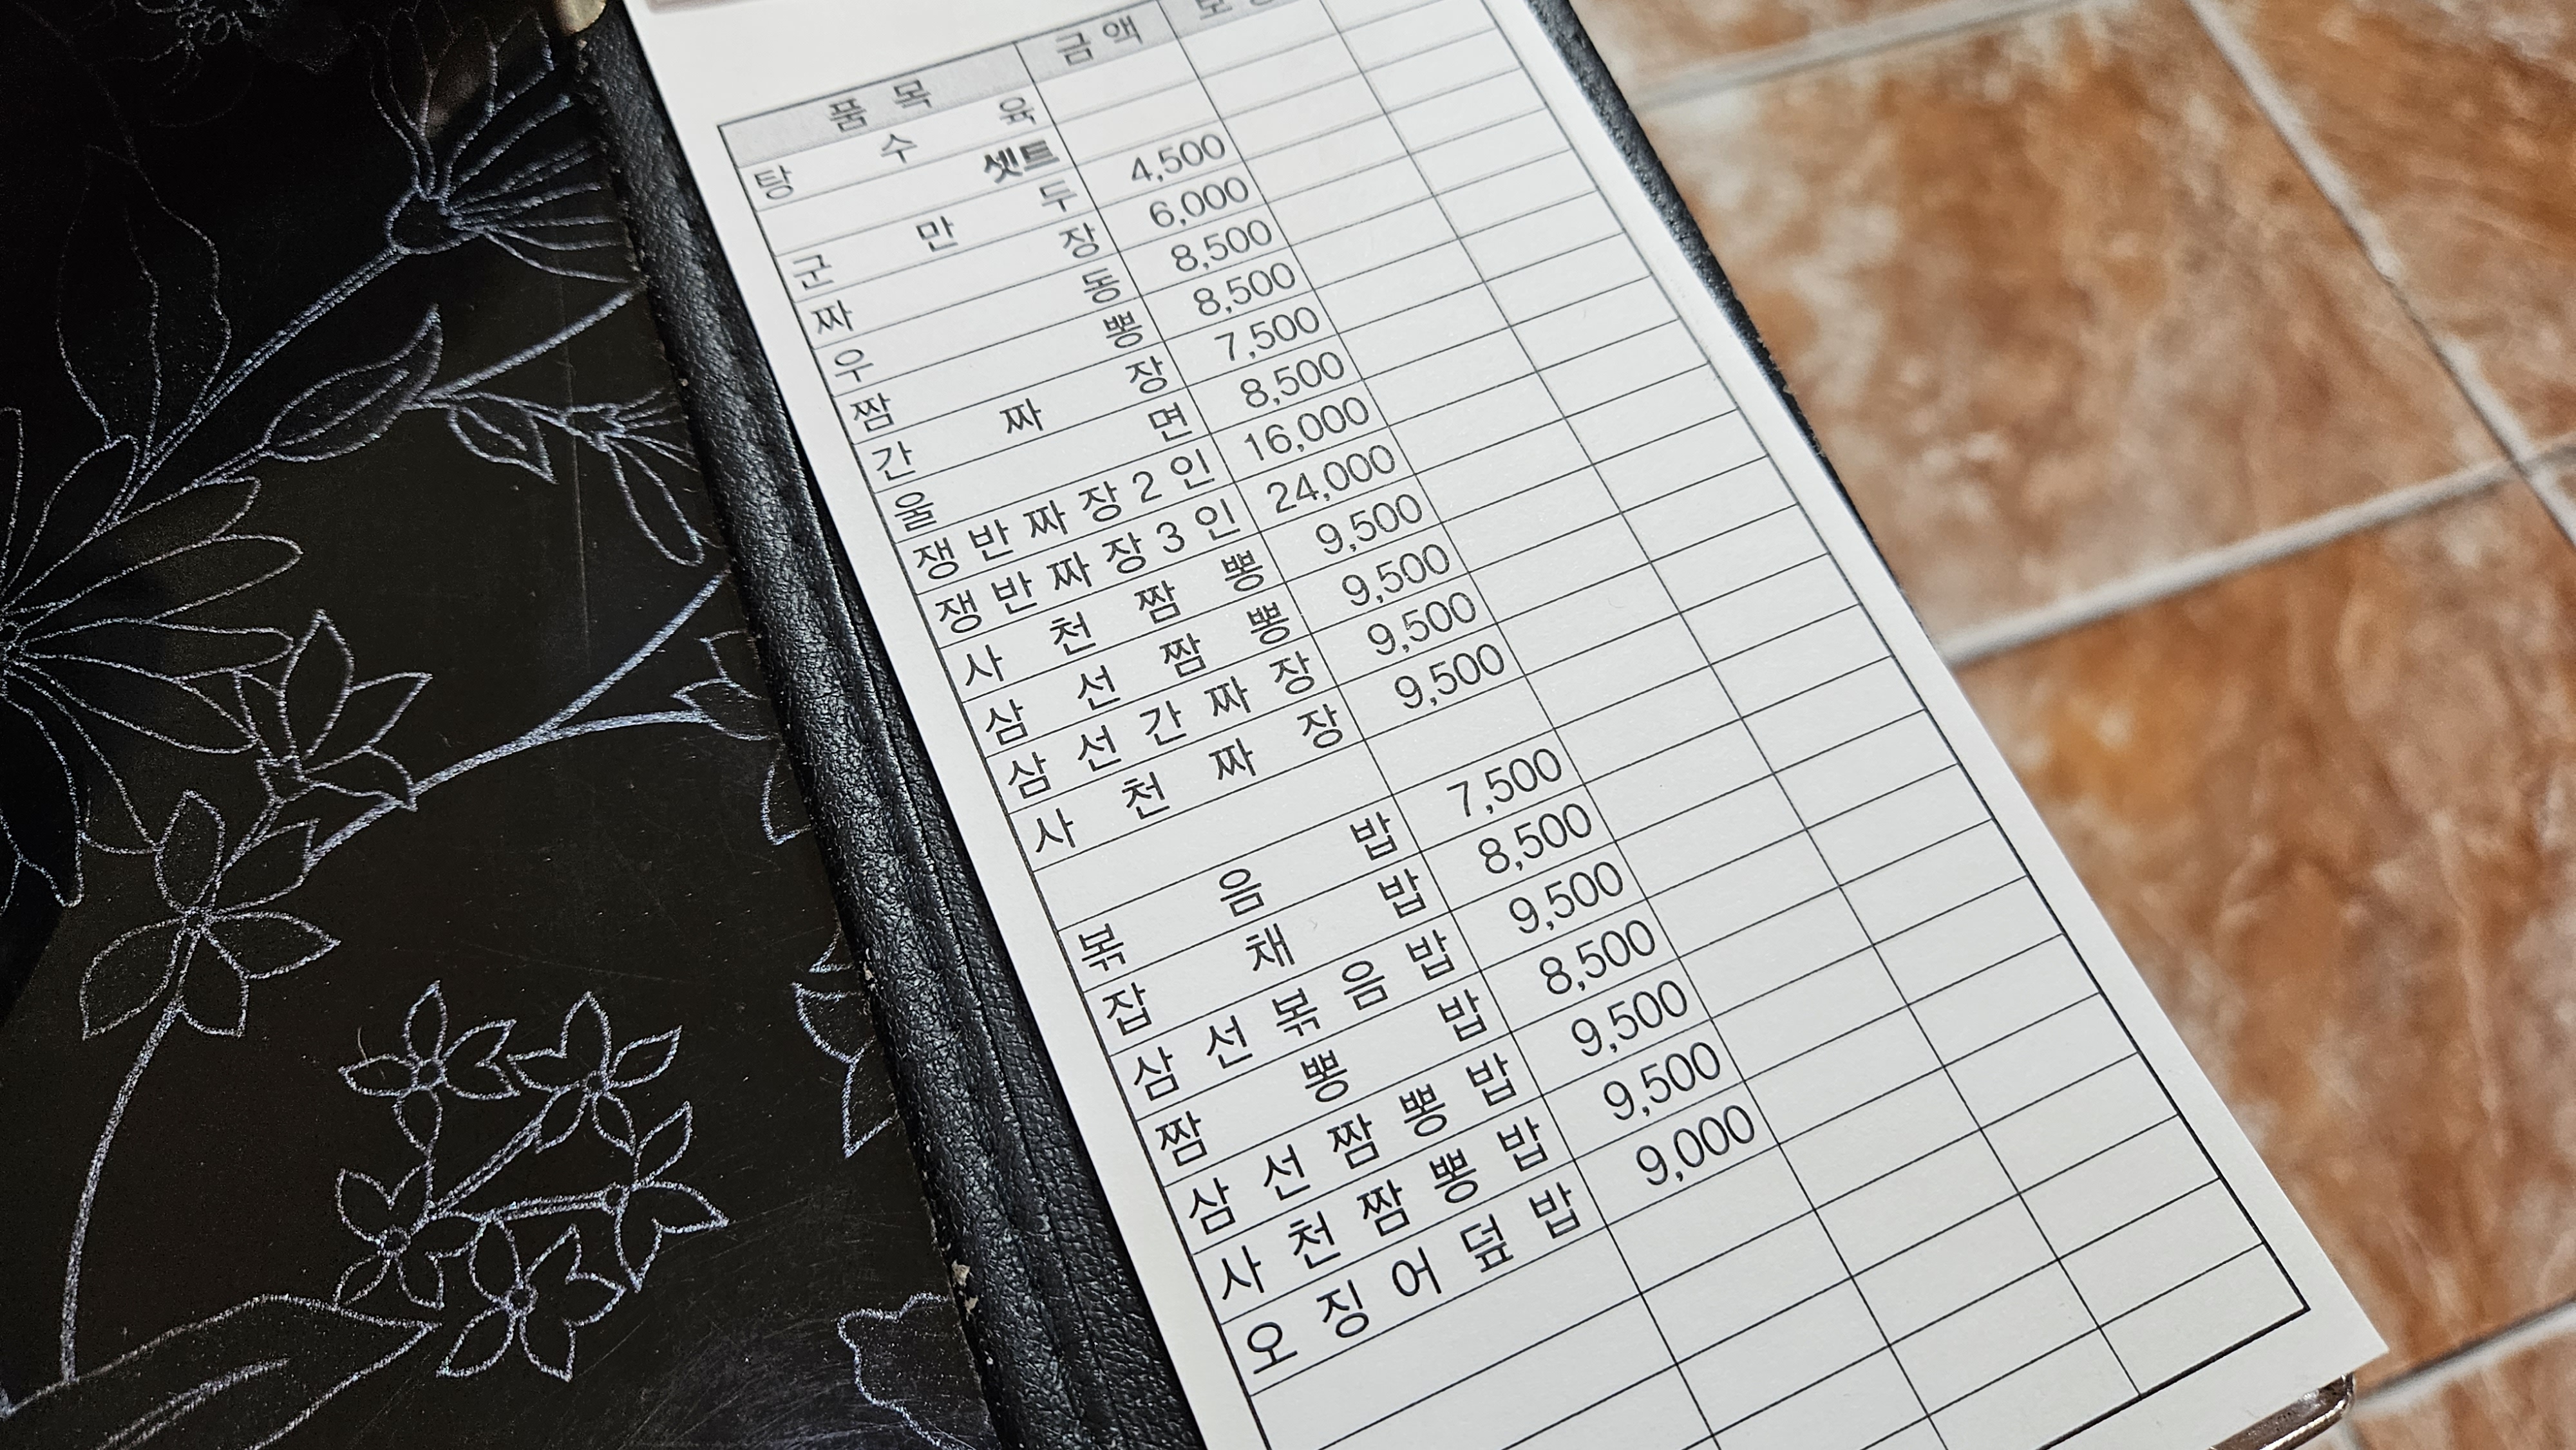 품 목 금 액
탕 수 육
셋트
군 만 두 4,500
짜 장 6,000
우 동 8,500
짬 뽕 8,500
간 짜 장 7,500
울 면 8,500
쟁 반 짜 장 2 인 16,000
쟁 반 짜 장 3 인 24,000
사 천 짬 뽕 9,500
삼 선 짬 뽕 9,500
삼 선 간 짜 장 9,500
사 천 짜 장 9,500
볶 음 밥 7,500
잡 채 밥 8,500
삼 선 볶 음 밥 9,500
짬 뽕 밥 8,500
삼 선 짬 뽕 밥 9,500
사 천 짬 뽕 밥 9,500
오 징 어 덮 밥 9,000